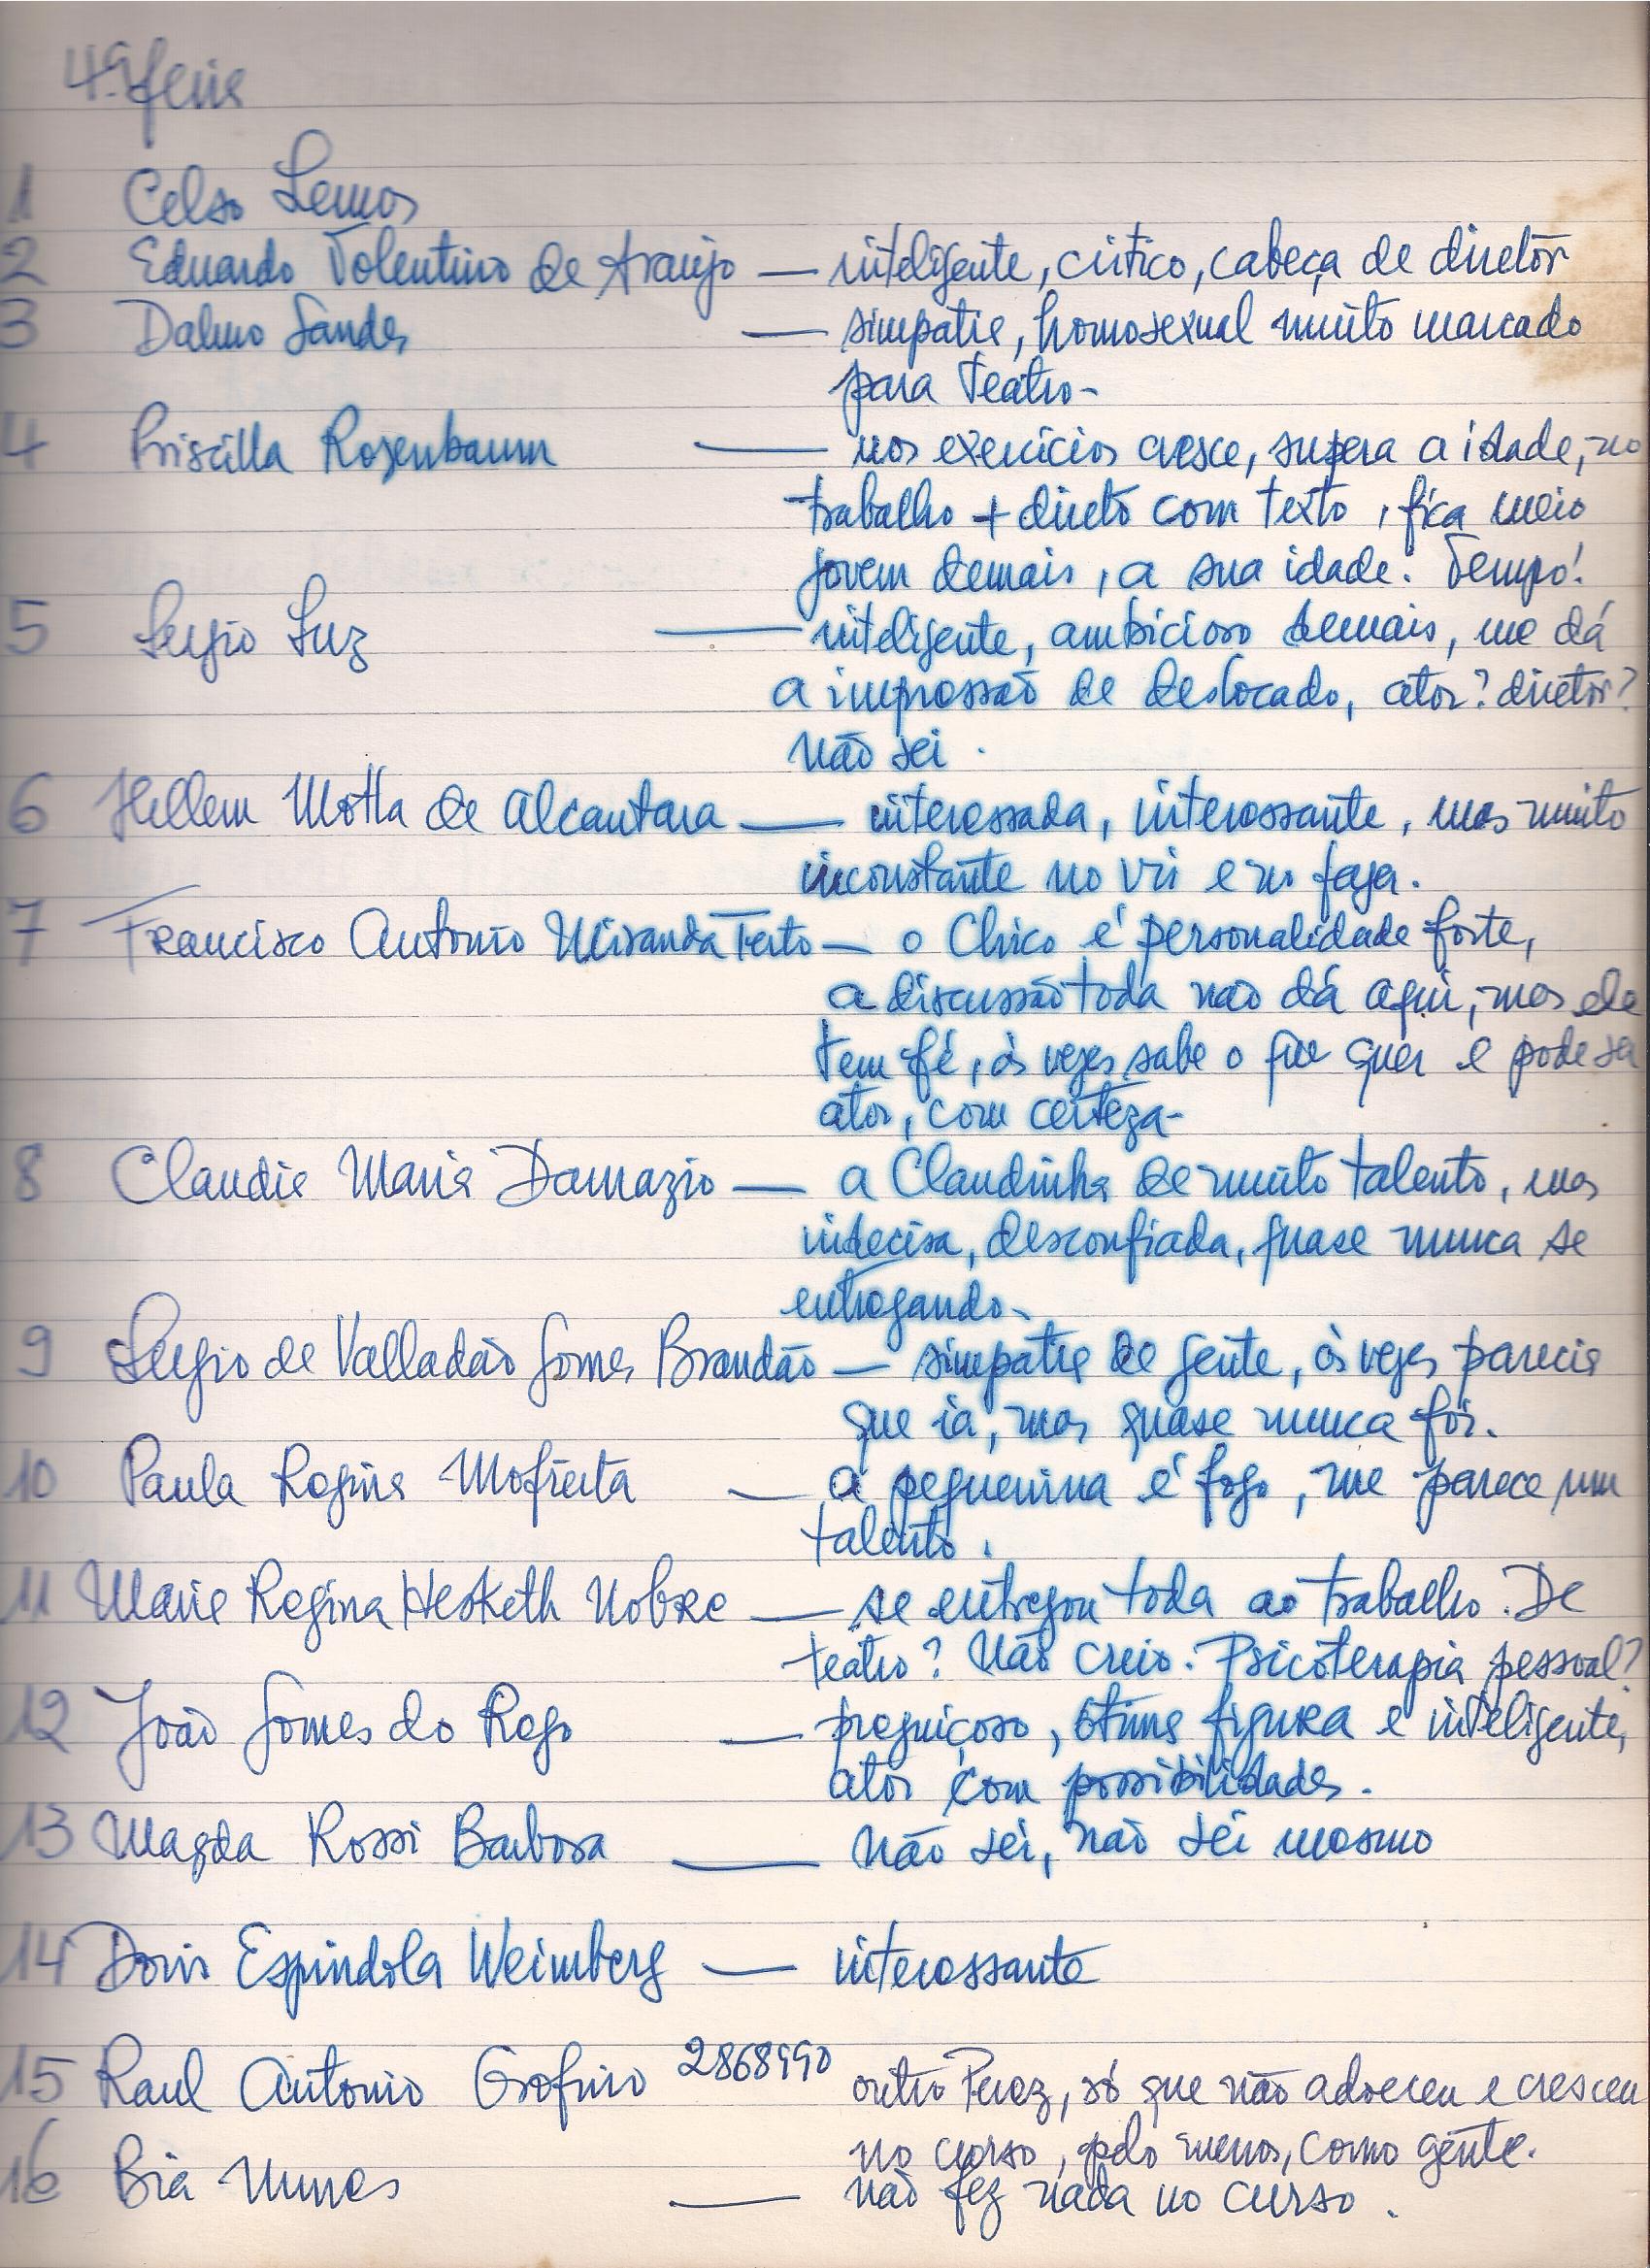 4ª feira
1 Celso Lemos
2 Eduardo Tolentino de Araujo — inteligente, crítico, cabeça de diretor
3 Dalmo Sandes — simpatia, homosexual muito marcado
para teatro-
4 Priscilla Rozenbaum — nos exercícios cresce, supera a idade, no
trabalho + direto com texto, fica meio
jovem demais, a sua idade. Tempo!
5 Sergio Luz — inteligente, ambicioso demais, me dá
a impressão de deslocado, ator? diretor?
não sei.
6 Hellem Motta de Alcantara — interessada, interessante, mas muito
inconstante no vir e no faça.
7 Francisco Antonio Miranda Terto — o Chico é personalidade forte,
a discussão toda não dá aqui, mas ele
tem fé, às vezes sabe o que quer e pode ser
ator, com certeza-
8 Claudia Maria Damazio — a Claudinha de muito talento, mas
indecisa, desconfiada, quase nunca se
entregando.
9 Sergio de Valladão Gomes Brandão — simpatia de gente, às vezes parecia
que ia, mas quase nunca foi.
10 Paula Regina Mofreita — a pequenina é fogo, me parece um
talento.
11 Maria Regina Hesketh Nobre — se entregou toda ao trabalho. De
teatro? Não creio. Psicoterapia pessoal?
12 João Gomes do Rego — preguiçoso, ótima figura e inteligente,
ator com possibilidades.
13 Magda Rossi Barbosa — não sei, não sei mesmo
14 Doris Espindola Weimberg — interessante
15 Raul Antonio 2868990 outro Perez, só que não adoeceu e cresceu
no curso, pelo menos, como gente.
16 Bia Nunes — não fez nada no curso.